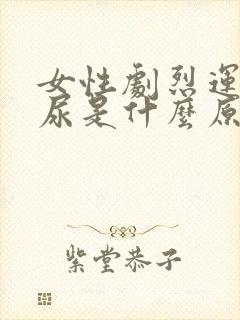 女性劇烈運
尿是什麼原
紫堂恭子